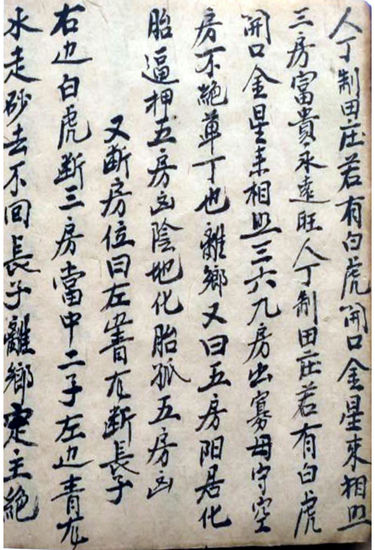 人丁制田庄若有白虎開口金星来相照
三房富貴永遠旺人丁制田庄若有白虎
開口金星来相照三六九房出寡母守空
房不絕单丁也離鄉又曰五房阳居化
胎逼押五房凶陰地化胎孤五房凶
又断房位曰左边青龙断長子
右边白虎断三房當中二子左边青龙
水走砂去不回長子離鄉定主絕